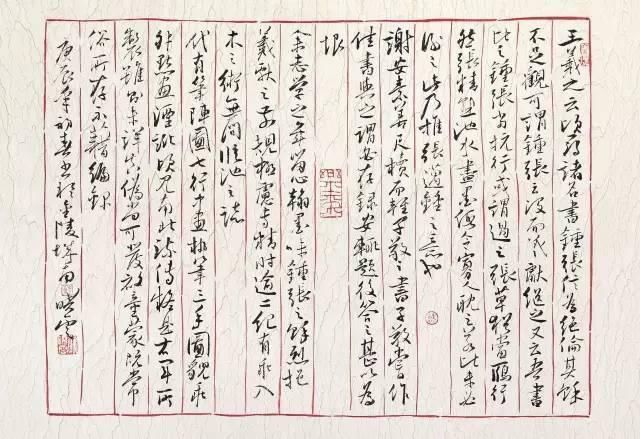 王羲之云頃尋諸名書鍾張信為絕倫其餘
不足觀可謂鍾張云沒而羲獻繼之又云吾書
比之鍾張當抗行或謂過之張草猶當鴈行
然張精熟池水盡墨假令寡人耽之若此未必
謝之此乃推張邁鍾之意也
謝安素善尺牘而輕子敬之書子敬嘗作
佳書與之謂必存錄安輒題後答之甚以為
恨
余志學之年留心翰墨味鍾張之餘烈挹
羲獻之前規極慮專精時逾二紀有乖入
木之術無間臨池之志
代有筆陣圖七行中畫執筆三手圖貌乖
舛點畫湮訛頃見南北流傳疑是右軍所
製雖則未詳真偽尚可發啟童蒙既常
俗所存不藉編錄
庚辰年初春書於金陵城南